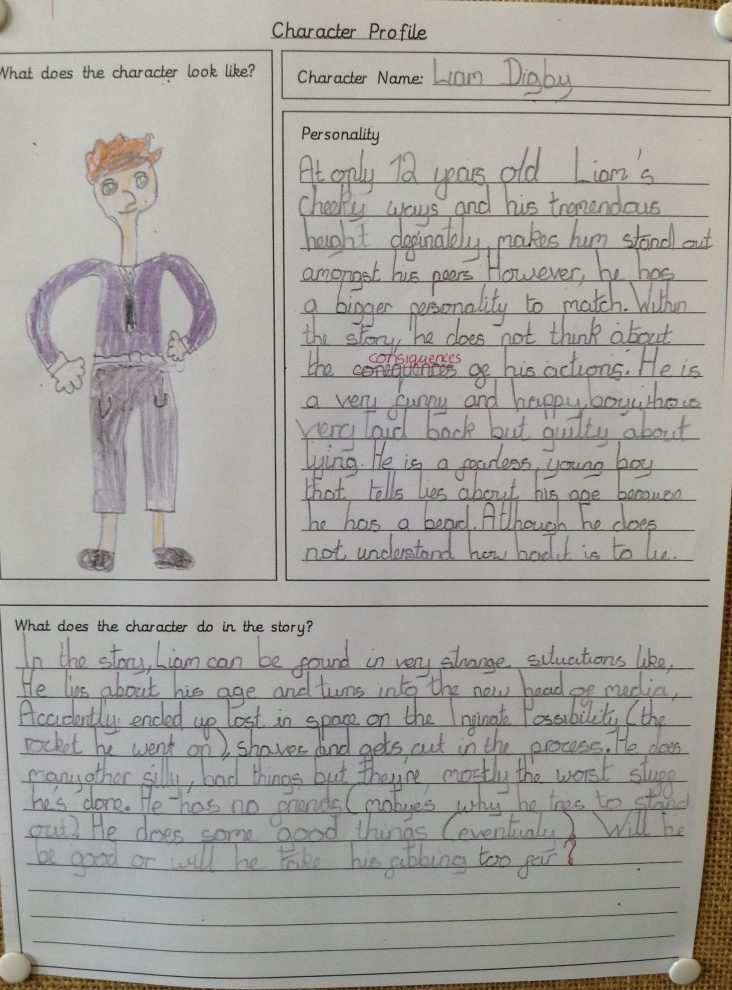 Character Profile
What does the character look like?
Character Name: Liam Digby
Personality
At only 12 years old Liam's
cheeky ways and his tremendous
height definately makes him stand out
amongst his peers. However, he has
a bigger personality to match. Within
the story, he does not think about
consiquences
the consequences of his actions. He is
a very funny and happy boy who is
very laid back but guilty about
lying. He is a fearless, young boy
that tells lies about his age because
he has a beard. Although he does
not understand how bad it is to lie.
What does the character do in the story?
In the story, Liam can be found in very strange situations like,
He lies about his age and turns into the new head of media,
Accidently ended up lost in space on the Infinate Possibility (the
rocket he went on), shaves and gets cut in the process. He does
many other silly, bad things but they're mostly the worst stuff
he's done. He has no friends (mabyes why he tries to stand
out). He does some good things (eventualy). Will he
be good or will he take his fibbing too far?